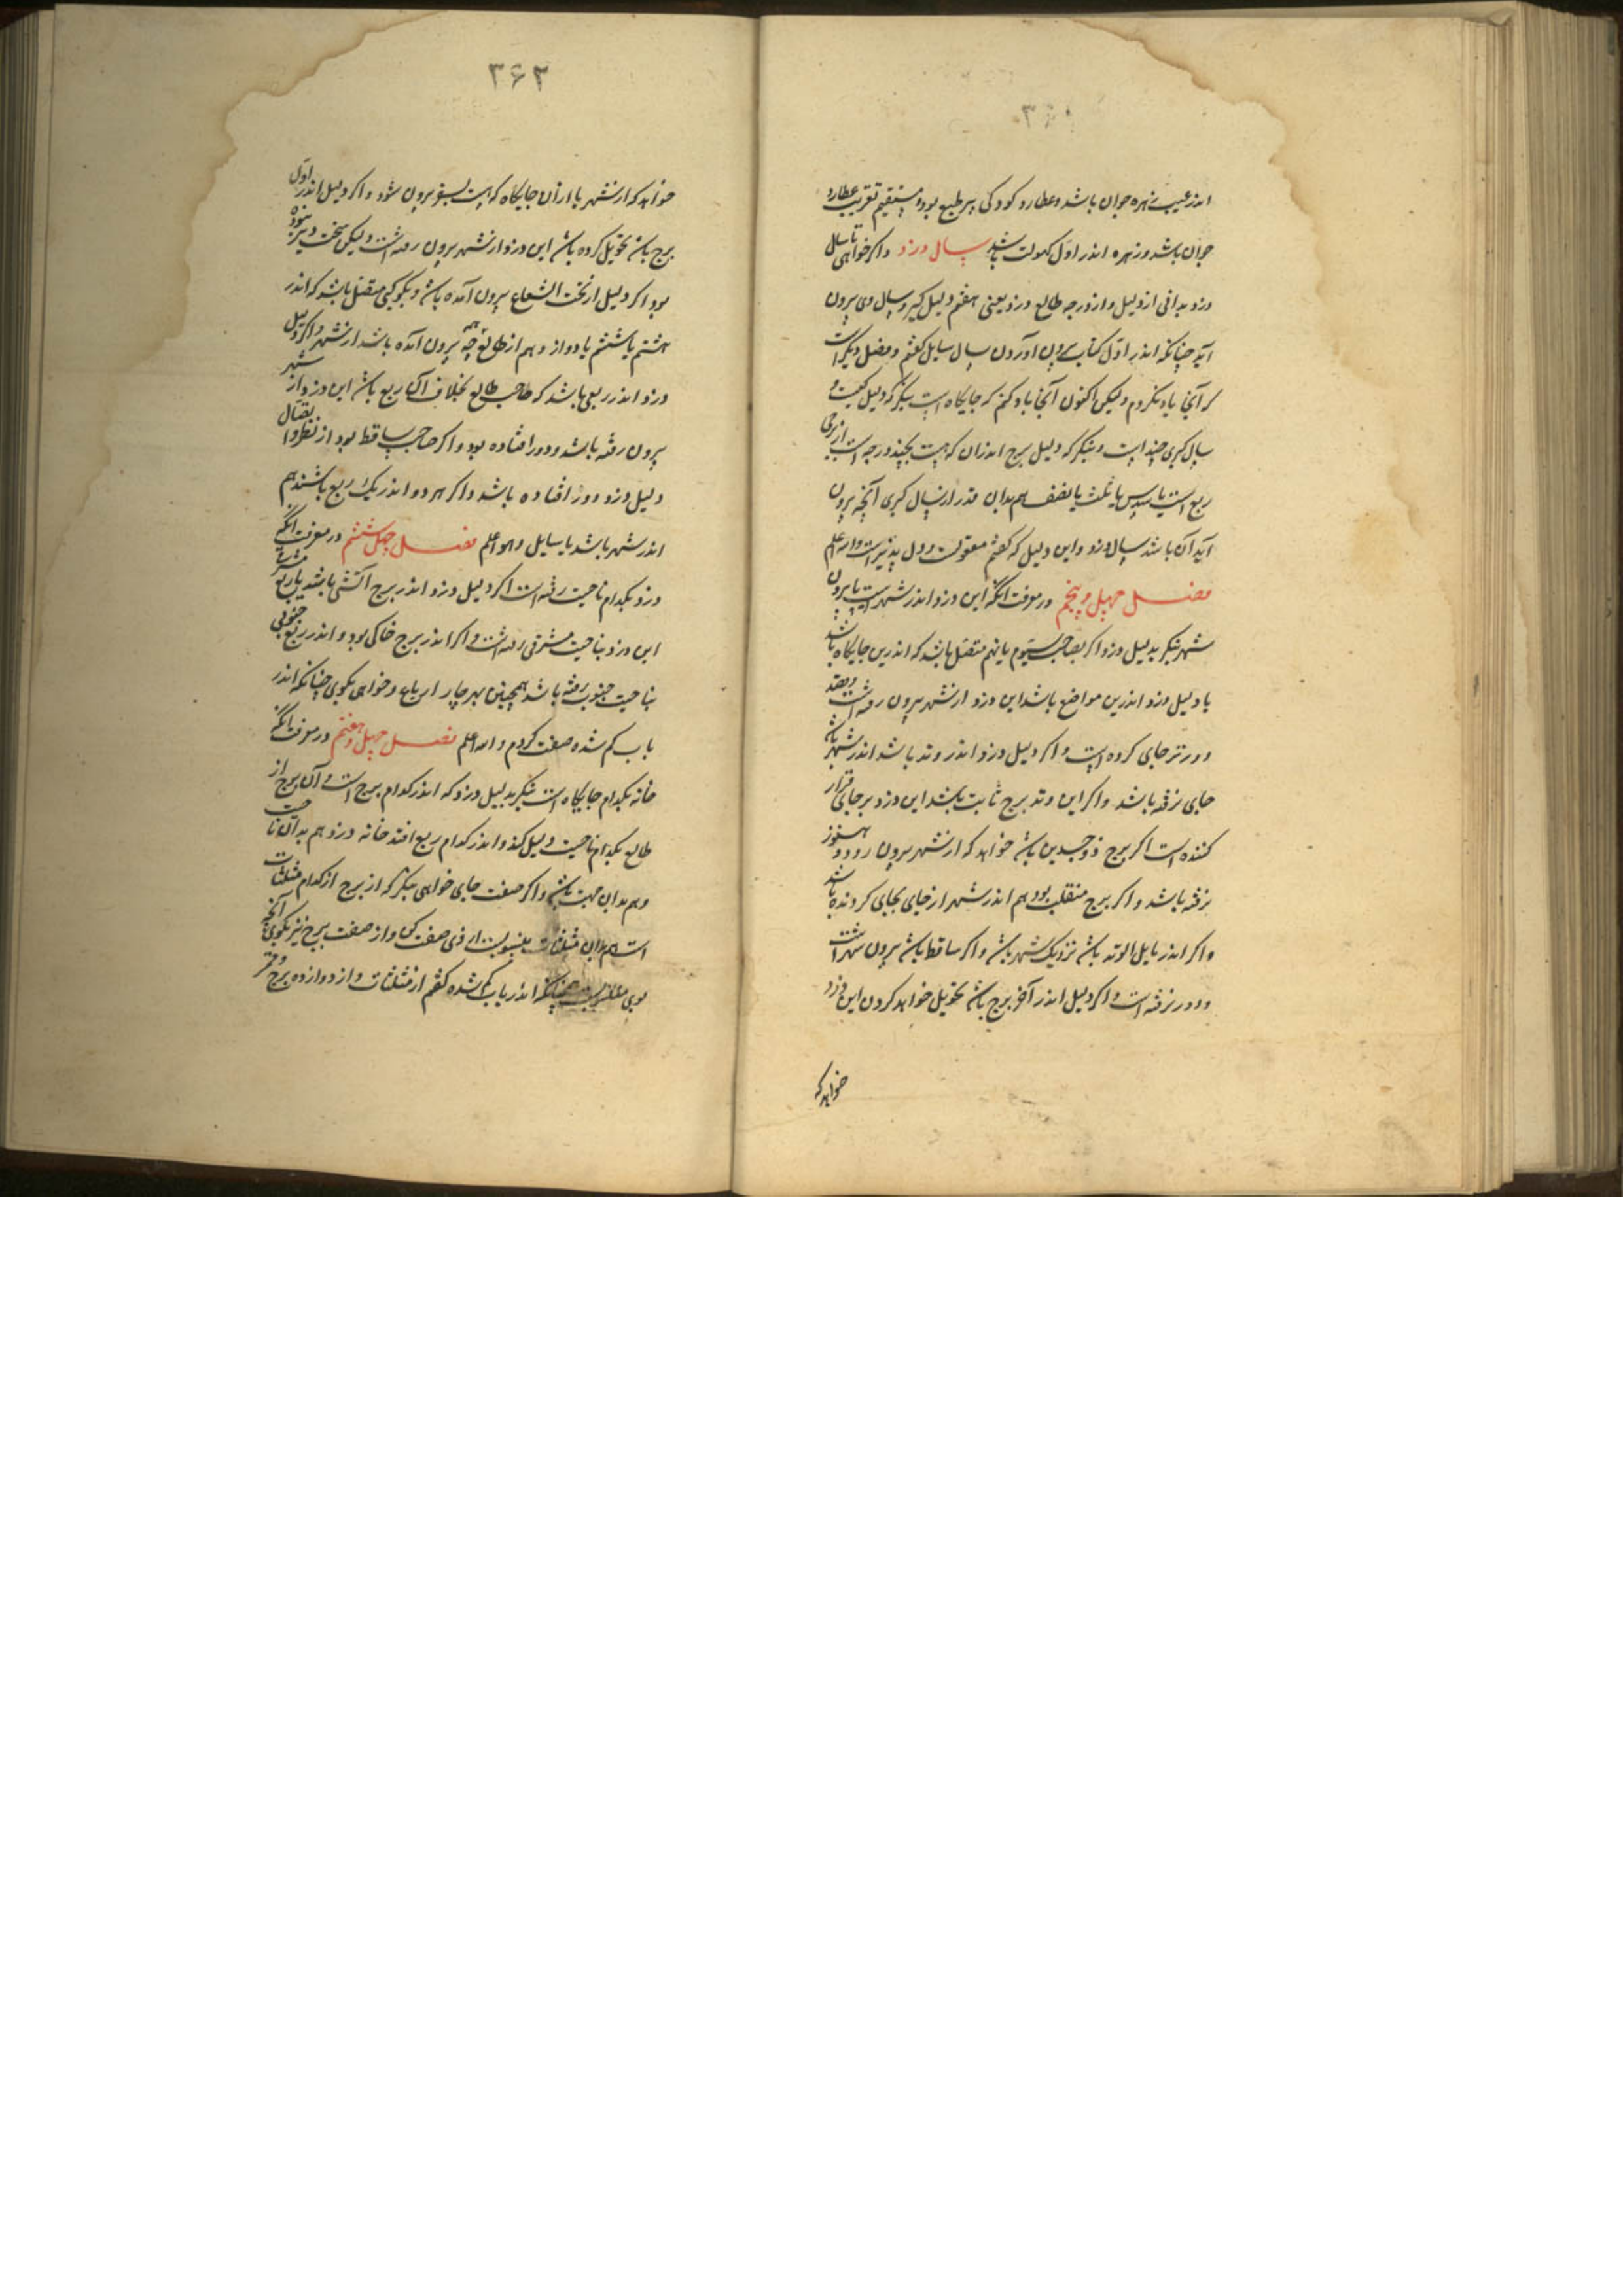 جوان باشد و زهره اندر اول کهولت باشد سال دزد و اگر خواهی تا سال
دزد بدانی از دلیل و از درجه طالع دزد یعنی هفتم دلیل گیر و سال وی بیرون
آید چنانکه اندر اول کتاب بیرون آوردن سال سایل گفتم و فصل دیگر است
که آنجا یاد نکردم ولیکن اکنون آنجا یاد کنم که جایگاه است بنگر که دلیل کیست و
سال کبری چند است و بنگر که دلیل برج اندران که هست بچند درجه است از برجی
ربع است یا سدس یا ثلث یا نصف هم بدان قدر از سال کبری آنچه بیرون
آید آن باشد سال دزد و این دلیل که گفتم معقولست و دل پذیر است والله اعلم
فصل چهل و پنجم در معرفت انکه این دزد اندر شهرست یا بیرون
شهر بنگر بدلیل دزد اگر بصاحب سیوم یا نهم متصل باشد که اندرین جایگاه باشد
یا دلیل دزد اندرین مواضع باشد این دزد از شهر بیرون رفته است و قصد
دورتر جای کرده است و اگر دلیل دزد اندر وتد باشد اندر شهر باشد
جای نرفته باشد و اگر این وتد برج ثابت باشد این دزد بر جای قرار
کننده است اگر برج ذوجسدین باشد خواهد که از شهر بیرون رود و هنوز
نرفته باشد و اگر برج منقلب بود هم اندر شهر از جای بجای گردنده باشد
و اگر اندر مایل الوتد باشد نزدیک شهر باشد و اگر ساقط باشد بیرون شهر است
و دور نرفته است و اگر دلیل اندر آخر برج باشد تحویل خواهد کردن این دزد
خواهد که
۳۶۲
خواهد که از شهر یا از آن جایگاه که هست بسفر بیرون شود و اگر دلیل اندر اول
برج باشد تحویل کرده باشد این دزد از شهر بیرون رفته است ولیکن سخت دیر نبوده
بود اگر دلیل از تحت الشعاع بیرون آمده باشد و بکوکبی متصل باشد که اندر
دزد اندر ربعی باشد که صاحب طالع بخلاف آن ربع باشد این دزد از شهر
بیرون رفته باشد و دور افتاده بود و اگر صاحب ساقط بود از نظر و اتصال
دلیل دزد دور افتاده باشد و اگر هر دو اندر یک ربع باشند هم
اندر شهر باشد یا سایل وهو اعلم فصل چهل ششم در معرفت انکه
دزد بکدام ناحیت رفته است اگر دلیل دزد اندر برج آتشی باشد یا ربع مشرقی
این دزد بناحیت مشرقی رفته است و اگر اندر برج خاکی بود و اندر ربع جنوبی
بناحیت جنوب رفته باشد همچنین بهر چار ارباع و خواهی بگوی چنانکه اندر
باب گم شده صفت کردم والله اعلم فصل چهل و هفتم در معرفت انکه
خانه بکدام جایگاه است بنگر بدلیل دزد که اندر کدام برج است و آن برج از
طالع بکدام ناحیت دلیل کند و اندر کدام ربع افتد خانه دزد هم بدان ناحیت
وهم بدان جهت باشد و اگر صفت جای خواهی بنگر که از برج از کدام مثلثات
است هم بدان مثلثات منسوبست از وی صفت کن و از صفت برج نیز بگوی آنچه
بوی منسوبست چنانکه اندر باب گم شده گفتم از مثلثات و از دوازده برج و